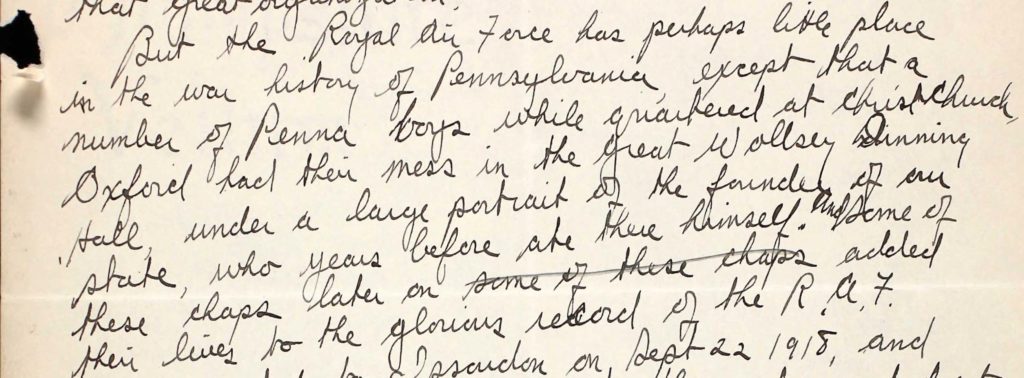 that great organization.
But the Royal Air Force has perhaps little place
in the war history of Pennsylvania, except that a
number of Penna boys while quartered at Christ Church,
Oxford had their mess in the great Wollsey Dinning
Hall, under a large portrait of the founder of our
state, who years before ate there himself. And some of
these chaps later on some of these chaps added
their lives to the glorious record of the R.A.F.
Issoudon on, Sept 22 1918, and